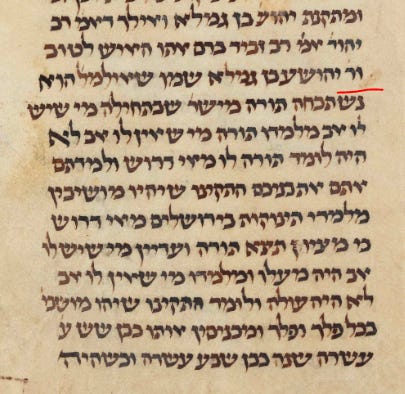 ומתקנת יהושע בן גמלא ואילך דאמ' רב
יהוד' אמ' רב זכיר ברם אתו האיש לטוב
ור' יהושע בן גמלא שמו שאילמלי הוא
נשתכחה תורה מישר' שבתחילה מי שיש
לו אב מלמדו תורה מי שאין לו אב לא
היה לומד תורה לו מאי דרוש ולמדתם
אתם את בניכם התקינו שיהיו מושיבין
מלמדי תינוקות בירושלים מאי דרוש
כי מציון תצא תורה ועדיין מי שיש לו
אב היה מעלו ומלמדו מי שאין לו אב
לא היה עולה ולומד התקינו שיהו מושבי'
בכל פלך ופלך ומכניסין אותו כבן שש ע
עשרה שנה כבן שבע עשרה וכשהיה